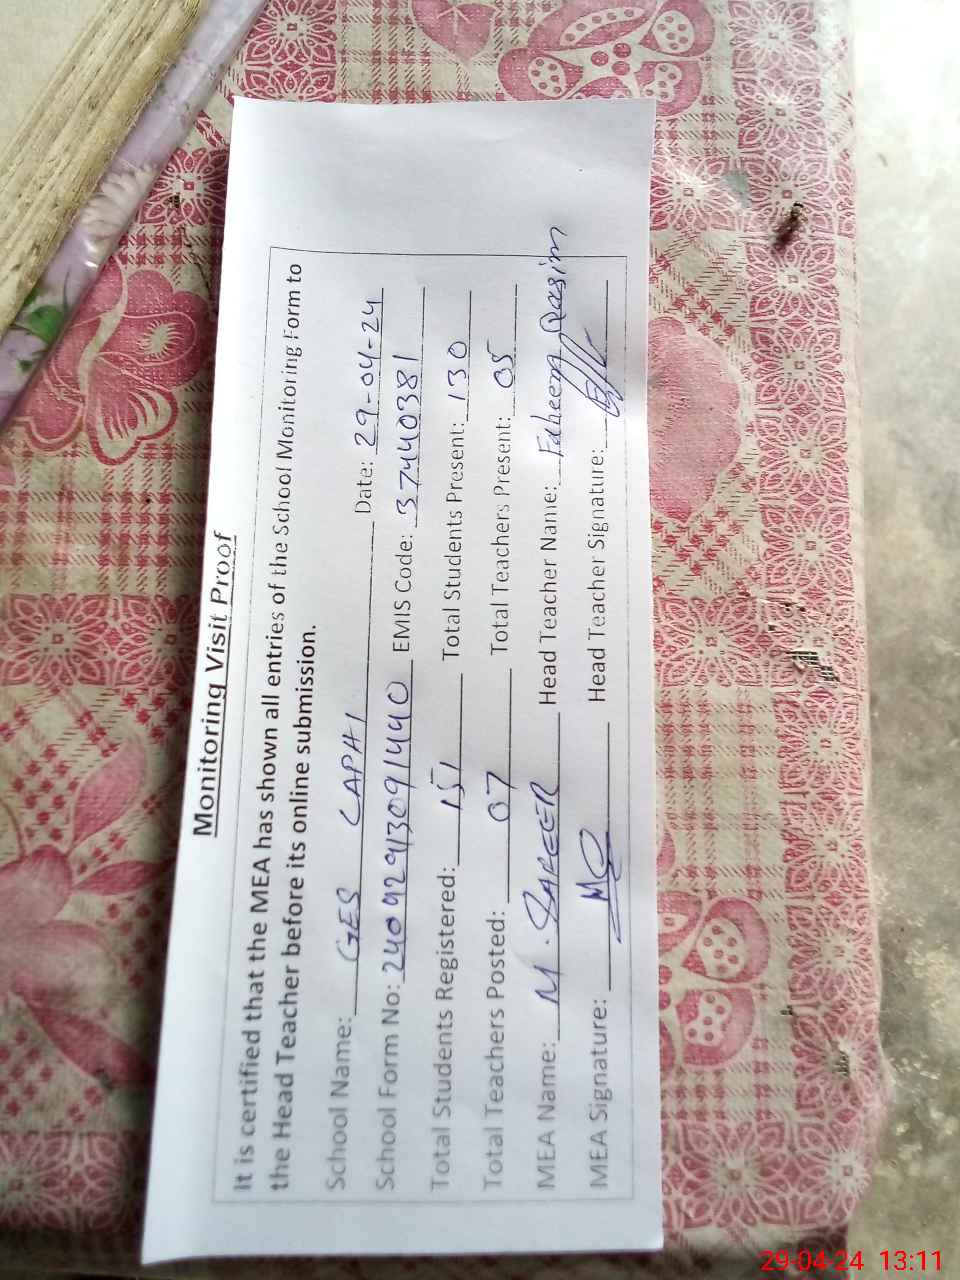 Monitoring Visit Proof
It is certified that the MEA has shown all entries of the School Monitoring Form to
the Head Teacher before its online submission.
School Name: GES CAPHI Date: 29-04-24
School Form No: 24042913091440 EMIS Code: 37440381
Total Students Registered: 151 Total Students Present: 130
Total Teachers Posted: 07 Total Teachers Present: 05
MEA Name: M. SAFEER Head Teacher Name: Faheem Qasim
MEA Signature: Head Teacher Signature:
29-04-24 13:11